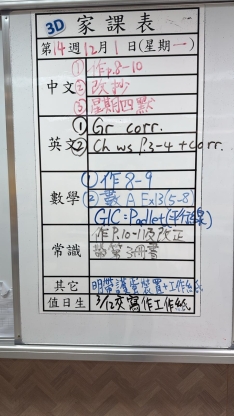 3D 家課表
第14週12月1日(星期一)
中文
① 作p.8-10
② 改抄
③ 星期四默
英文
① Gr corr.
② Ch ws P.3-4 + corr.
數學
① 作8-9
② 數 A Ex13(5-8)
GIC=Padlet(平行線)
常識
作P.10-11及改正
第3冊書
其它
明帶護脊裝置+工作紙
值日生
3/12交寫作工作紙